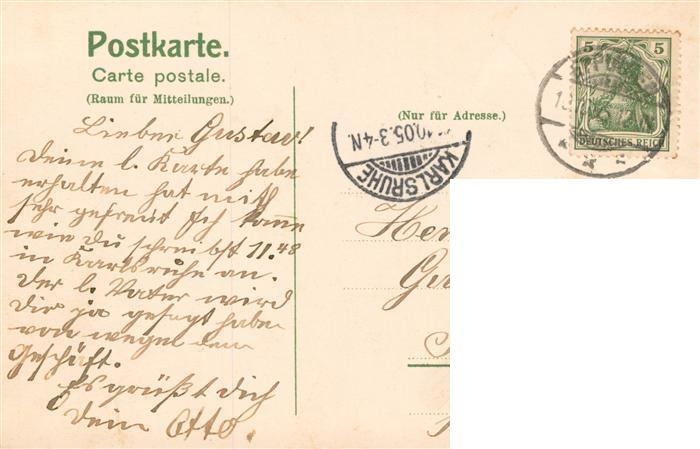 Postkarte.
Carte postale.
(Raum für Mitteilungen.)
(Nur für Adresse.)
5 5
DEUTSCHES REICH
10.05.3-4N.
KARLSRUHE
Lieber Gustav!
Deine l. Karte habe
erhalten hat mich
sehr gefreut Ich komme
wie Du schreibst 11.48
in Karlsruhe an.
Der l. Vater wird
Dir ja gesagt haben
von wegen dem
Geschäft.
Es grüßt dich
Dein Otto.